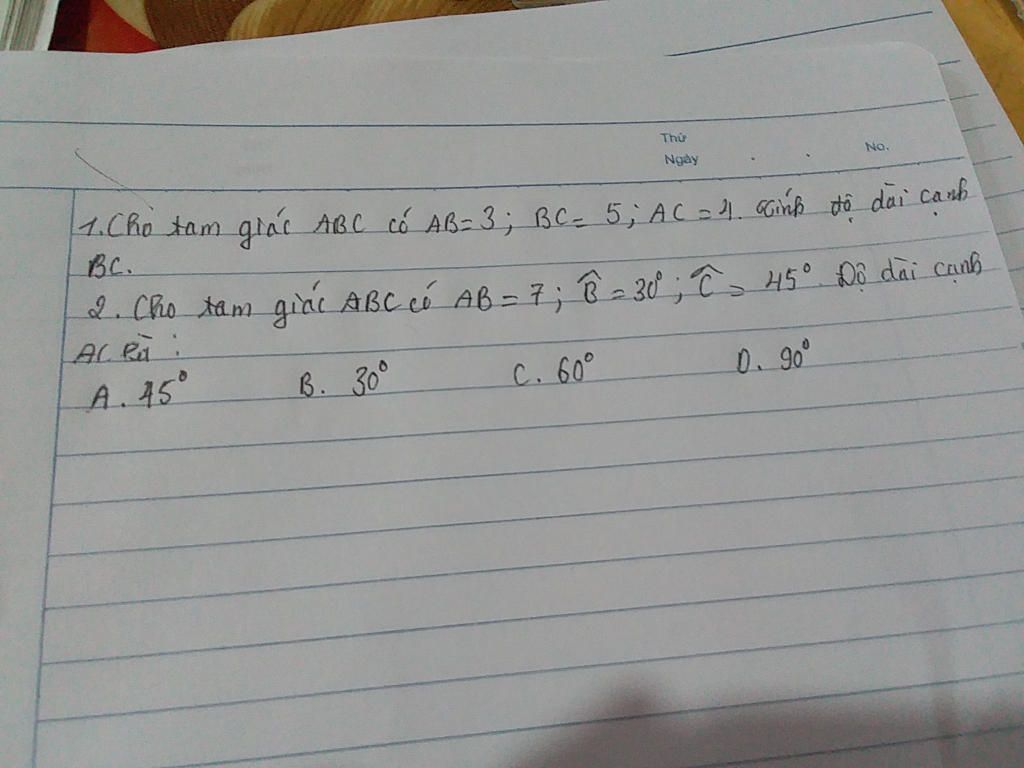 Thứ
Ngày . . No.
1. Cho tam giác ABC có AB = 3; BC = 5; AC = 4. Tính độ dài cạnh
BC.
2. Cho tam giác ABC có AB = 7; B̂ = 30°; Ĉ = 45°. Độ dài cạnh
AC là:
A. 45° B. 30° C. 60° D. 90°